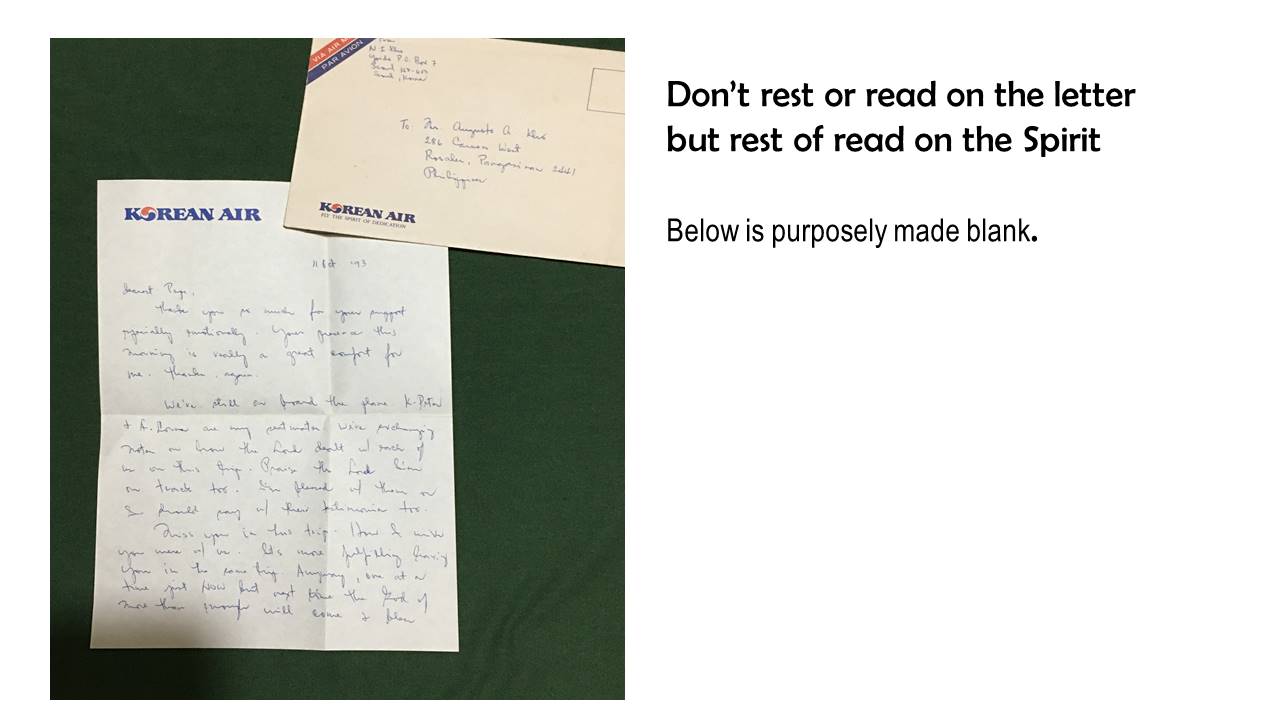 VIA AIR M
PAR AVION
P.O. Box 7
Seoul
Seoul, Korea
To: Mr. Augusto A.
286 Carmen West
Rosales, Pangasinan 2441
Philippines
KOREAN AIR
FLY THE SPIRIT OF DEDICATION
KOREAN AIR
'93
Dearest
Thank you so much for your support
especially emotionally. Your presence this
morning is really a great comfort for
me. Thanks again.
We're still on board the plane. K. Peter
& A. are my seatmates. We're exchanging
notes on how the Lord dealt w/ each of
us on this trip. Praise the Lord
on track too. I'm pleased w/ them or
I should say w/ their testimonies too.
Miss you in this trip. How I wish
you were w/ us. It's more fulfilling having
you in the same trip. Anyway, one at a
time just NOW but next time the God of
more than enough will come & bless
Don't rest or read on the letter
but rest of read on the Spirit
Below is purposely made blank.